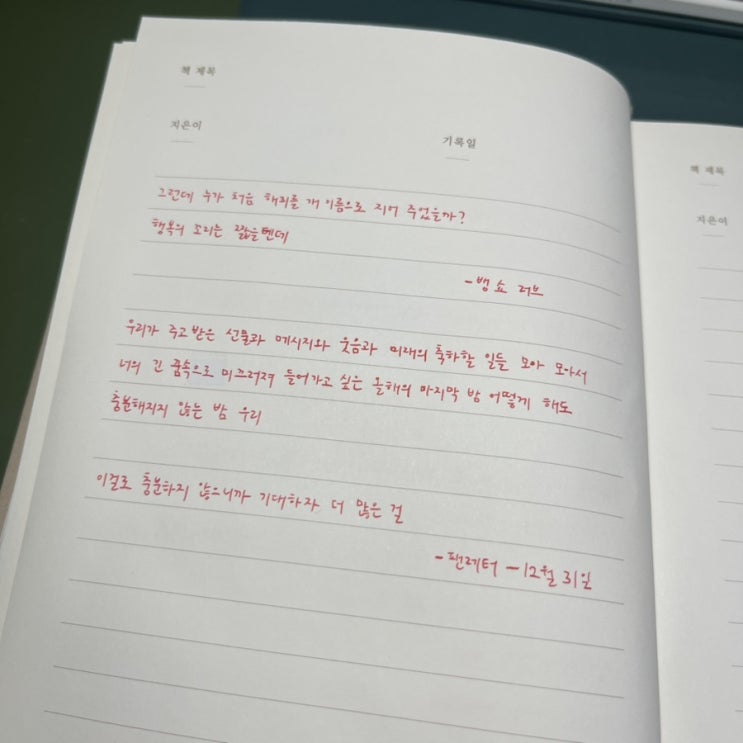 책 제목
지은이
기록일
그런데 누가 처음 해피를 개 이름으로 지어 주었을까?
행복의 꼬리는 짧을텐데
- 뱅쇼 러브
우리가 주고받은 선물과 메시지와 웃음과 미래의 축하할 일들 모아 모아서
너의 긴 꿈속으로 미끄러져 들어가고 싶은 올해의 마지막 밤 어떻게 해도
충분해지지 않는 밤 우리
이걸로 충분하지 않으니까 기대하자 더 많은 걸
- 팬레터 - 12월 31일
책 제목
지은이